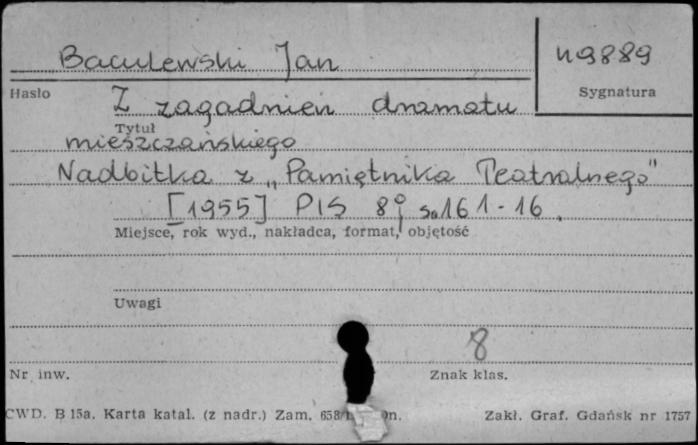 Baculewski Jan
49889
Hasło
Sygnatura
Z zagadnień dramatu
Tytuł
mieszczańskiego
Nadbitka z „Pamiętnika Teatralnego"
[1955] PIS 8° s. 161-16.
Miejsce, rok wyd., nakładca, format, objętość
Uwagi
8
Nr inw.
Znak klas.
CWD. B 15a. Karta katal. (z nadr.) Zam. 658/
Zakł. Graf. Gdańsk nr 1757